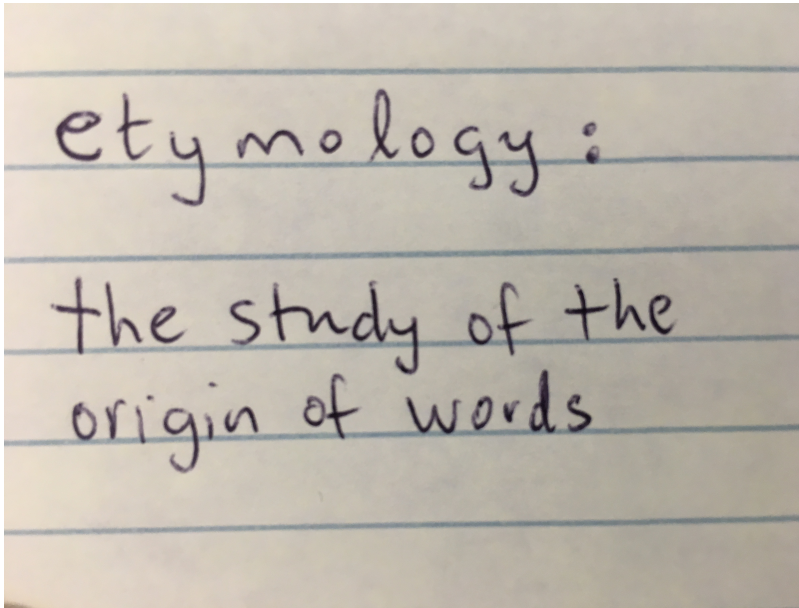 etymology:
the study of the
origin of words